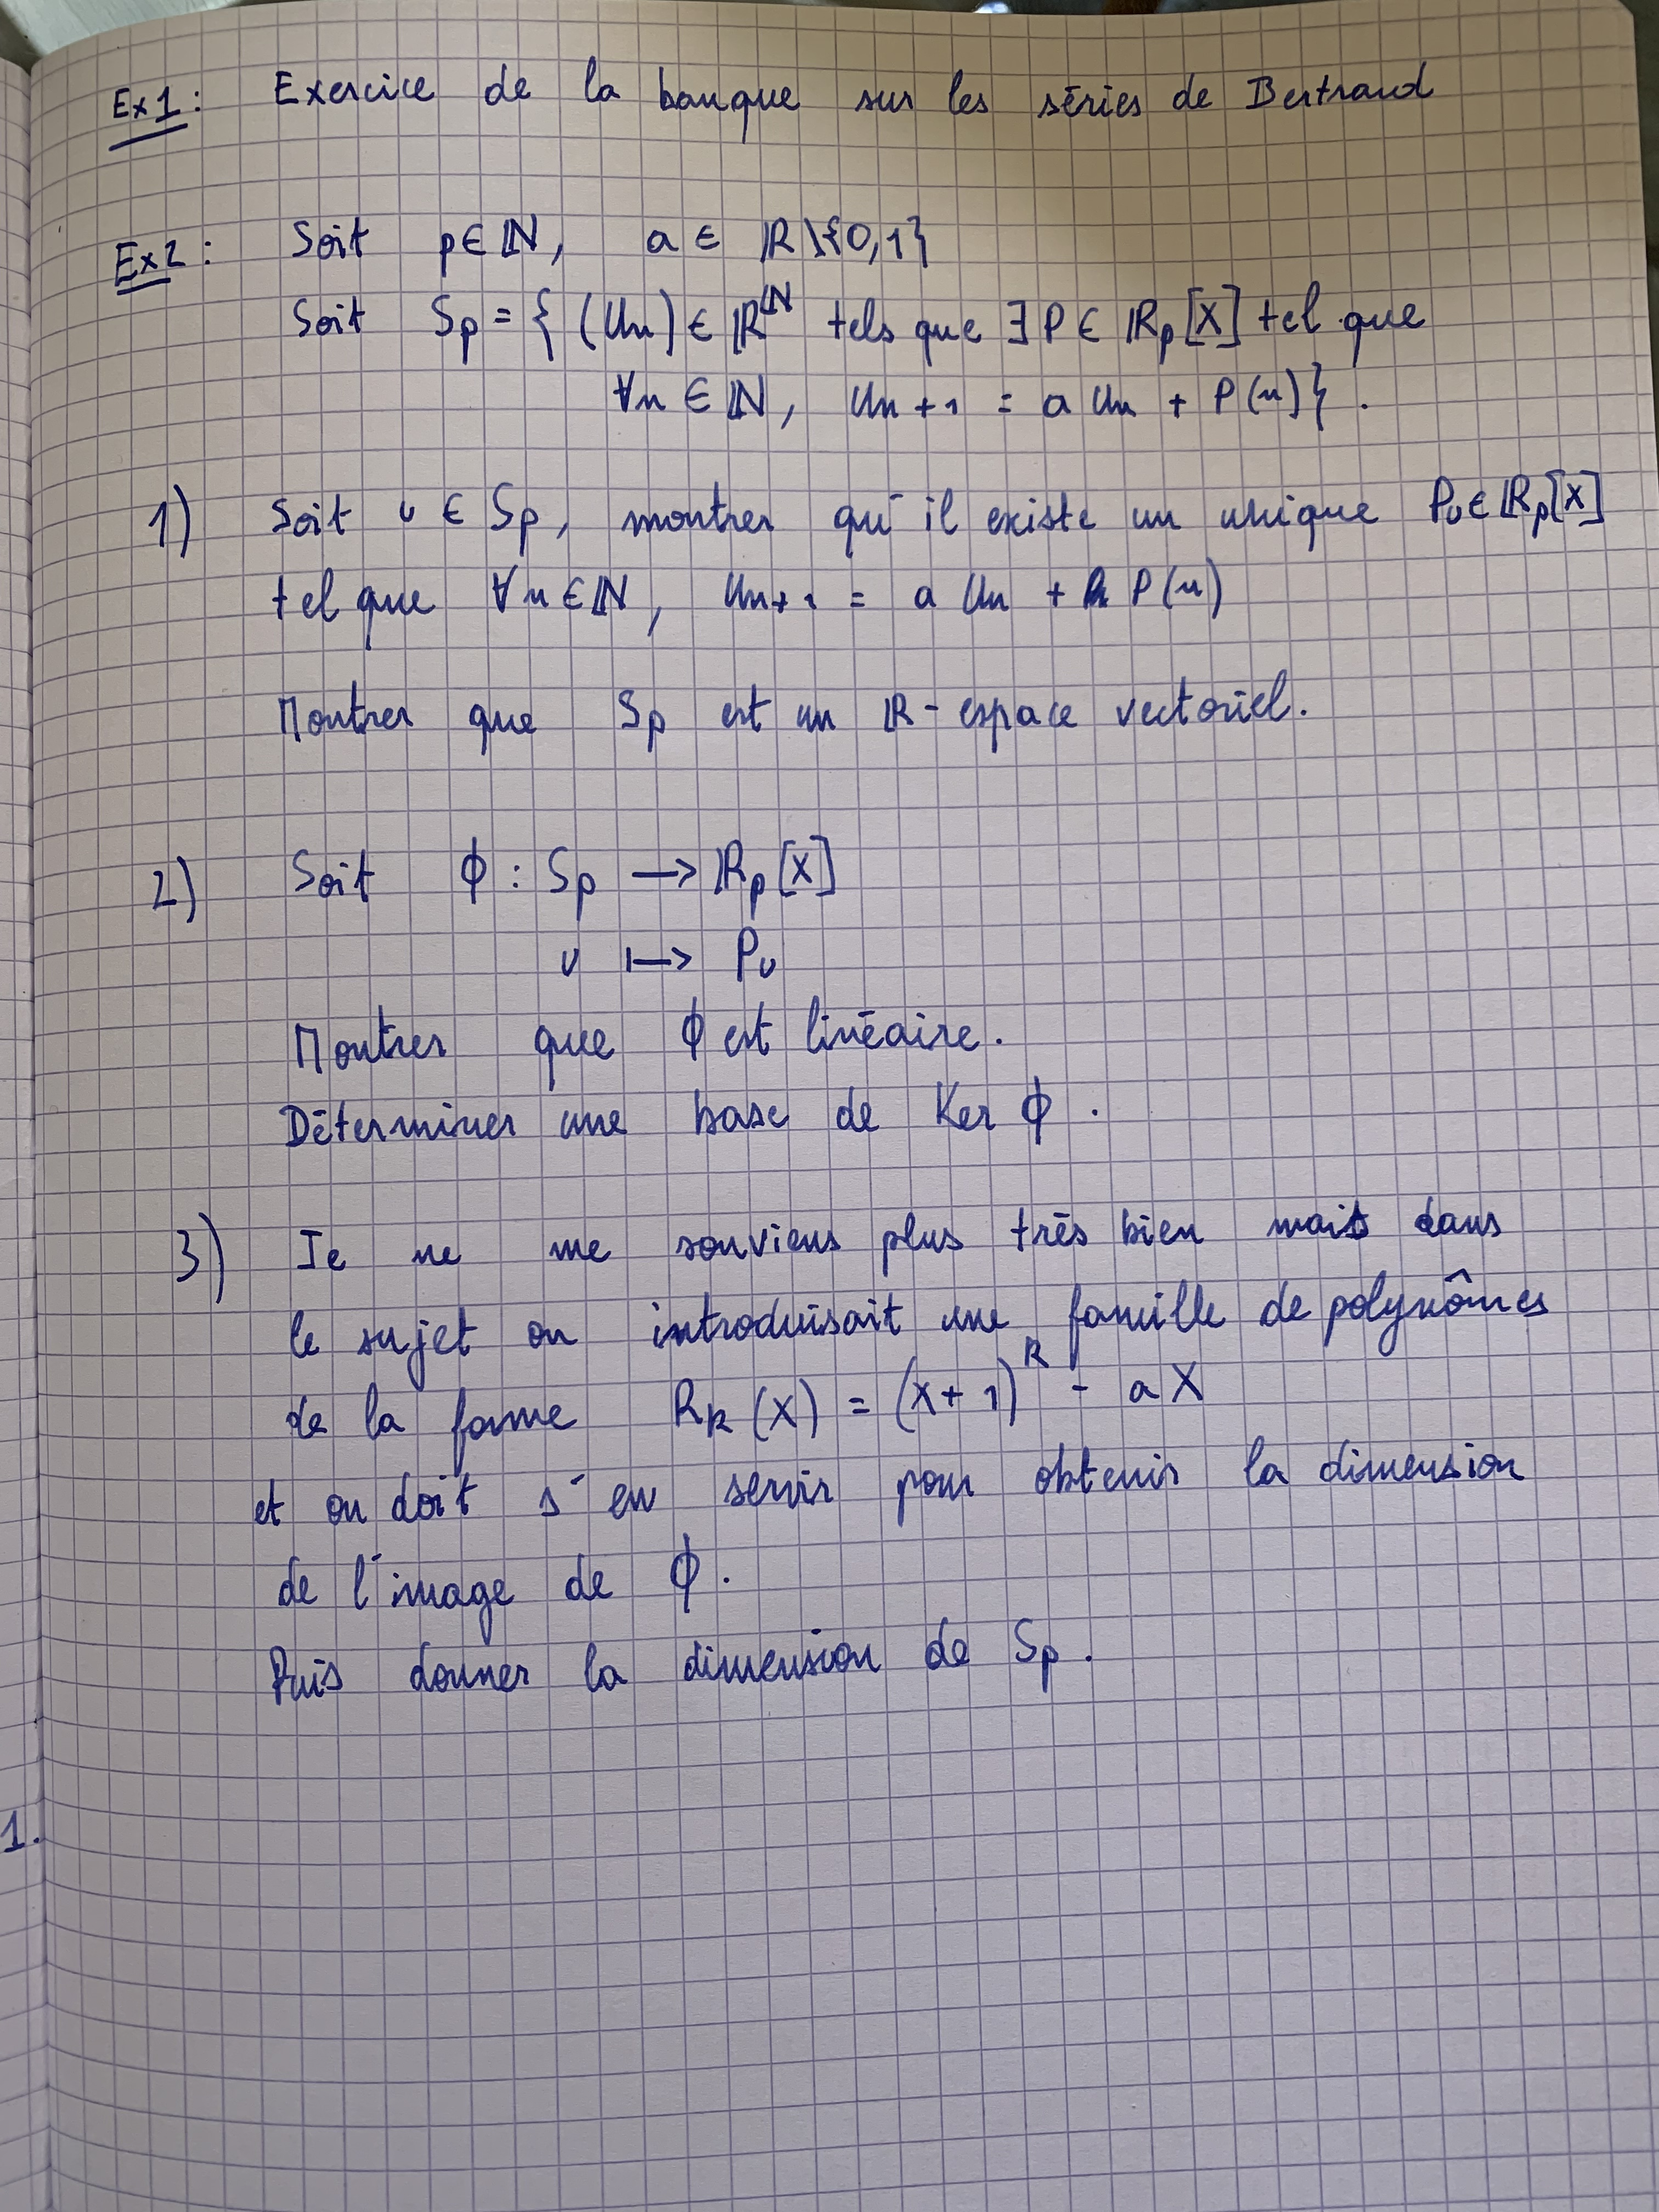 Ex1 : Exercice de la banque sur les séries de Bertrand
Ex2 : Soit p ∈ ℕ, a ∈ ℝ\{0,1}
Soit Sp = { (Un) ∈ ℝ^ℕ tels que ∃ P ∈ ℝp[X] tel que
∀n ∈ ℕ, Un+1 = a Un + P(n)} .
1) Soit u ∈ Sp, montrer qu'il existe un unique Pu ∈ ℝp[X]
tel que ∀n ∈ ℕ, Un+1 = a Un + P(n)
Montrer que Sp est un ℝ-espace vectoriel.
2) Soit ϕ : Sp → ℝp[X]
u ↦ Pu
Montrer que ϕ est linéaire.
Déterminer une base de Ker ϕ .
3) Je ne me souviens plus très bien mais dans
le sujet on introduisait une famille de polynômes
de la forme Rk(X) = (X+1)^k - aX
et on doit s'en servir pour obtenir la dimension
de l'image de ϕ.
Puis donner la dimension de Sp.
1.